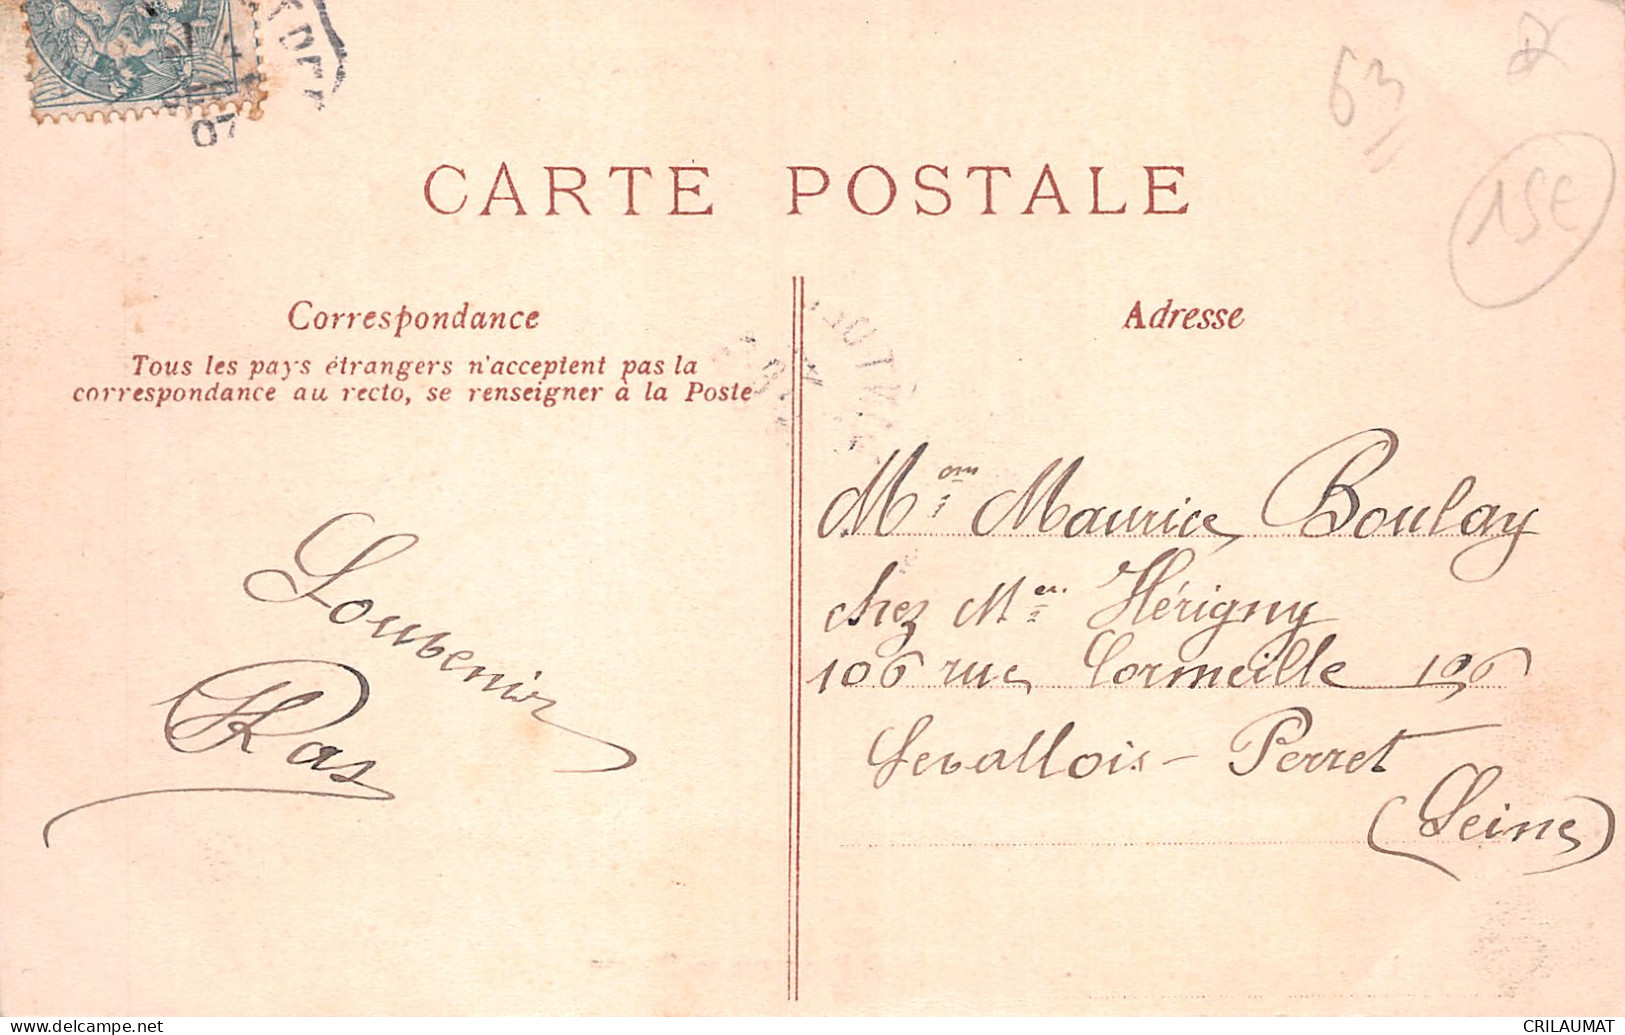 07
63
15€
CARTE POSTALE
Correspondance
Tous les pays étrangers n'acceptent pas la
correspondance au recto, se renseigner à la Poste
Souvenir
Ras
Adresse
Mme Maurice Boulay
chez Mer Hérigny
106 rue Cormeille 106
Levallois-Perret
(Seine)
CRILAUMAT